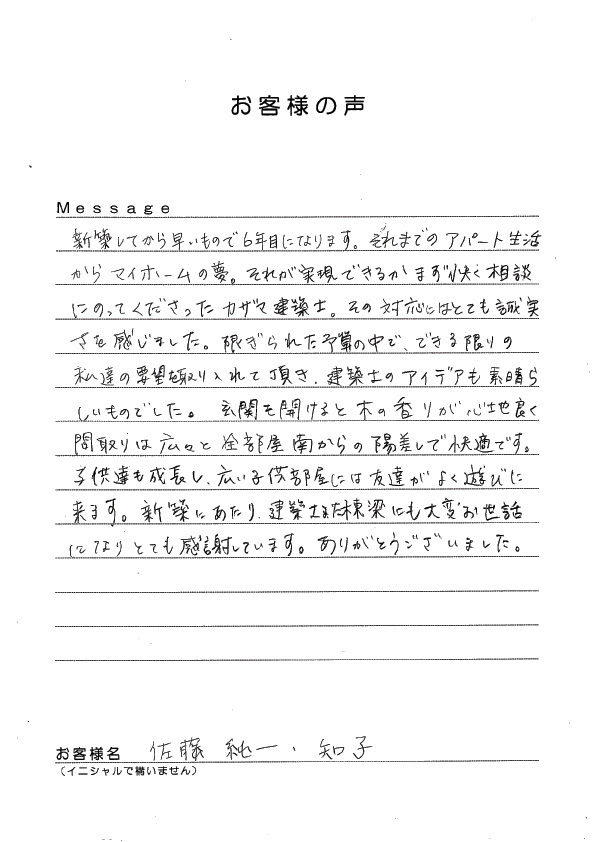 お客様の声
Message
新築してから早いもので6年目になります。それまでのアパート生活
からマイホームの夢。それが実現できるかまず快く相談
にのってくださったカザマ建築士。その対応にはとても誠実
さを感じました。限ぎられた予算の中で、できる限りの
私達の要望を取り入れて頂き、建築士のアイデアも素晴ら
しいものでした。玄関を開けると木の香りが心地良く
間取りは広々と全部屋南からの陽差しで快適です。
子供達も成長し、広い子供部屋には友達がよく遊びに
来ます。新築にあたり、建築士また棟梁にも大変お世話
になりとても感謝しています。ありがとうございました。
お客様名 佐藤 純一・知子
(イニシャルで構いません)